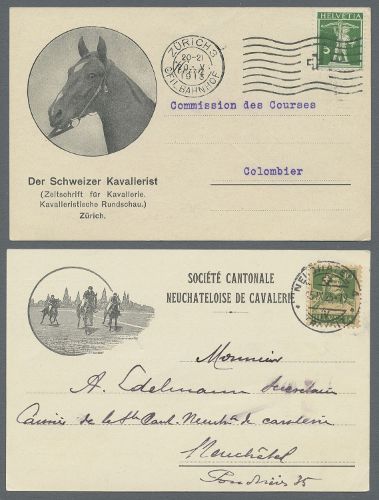 ZÜRICH 3
20-21
20.V
1913
SEILBAHNHOF
HELVETIA
5
Commission des Courses
Colombier
Der Schweizer Kavallerist
(Zeitschrift für Kavallerie.
Kavalleristische Rundschau.)
Zürich.
SOCIÉTÉ CANTONALE
NEUCHATELOISE DE CAVALERIE
Monsieur
A. Edelmann Secrétaire
de la Sté Cant. Neuch. de cavalerie
Neuchâtel
35